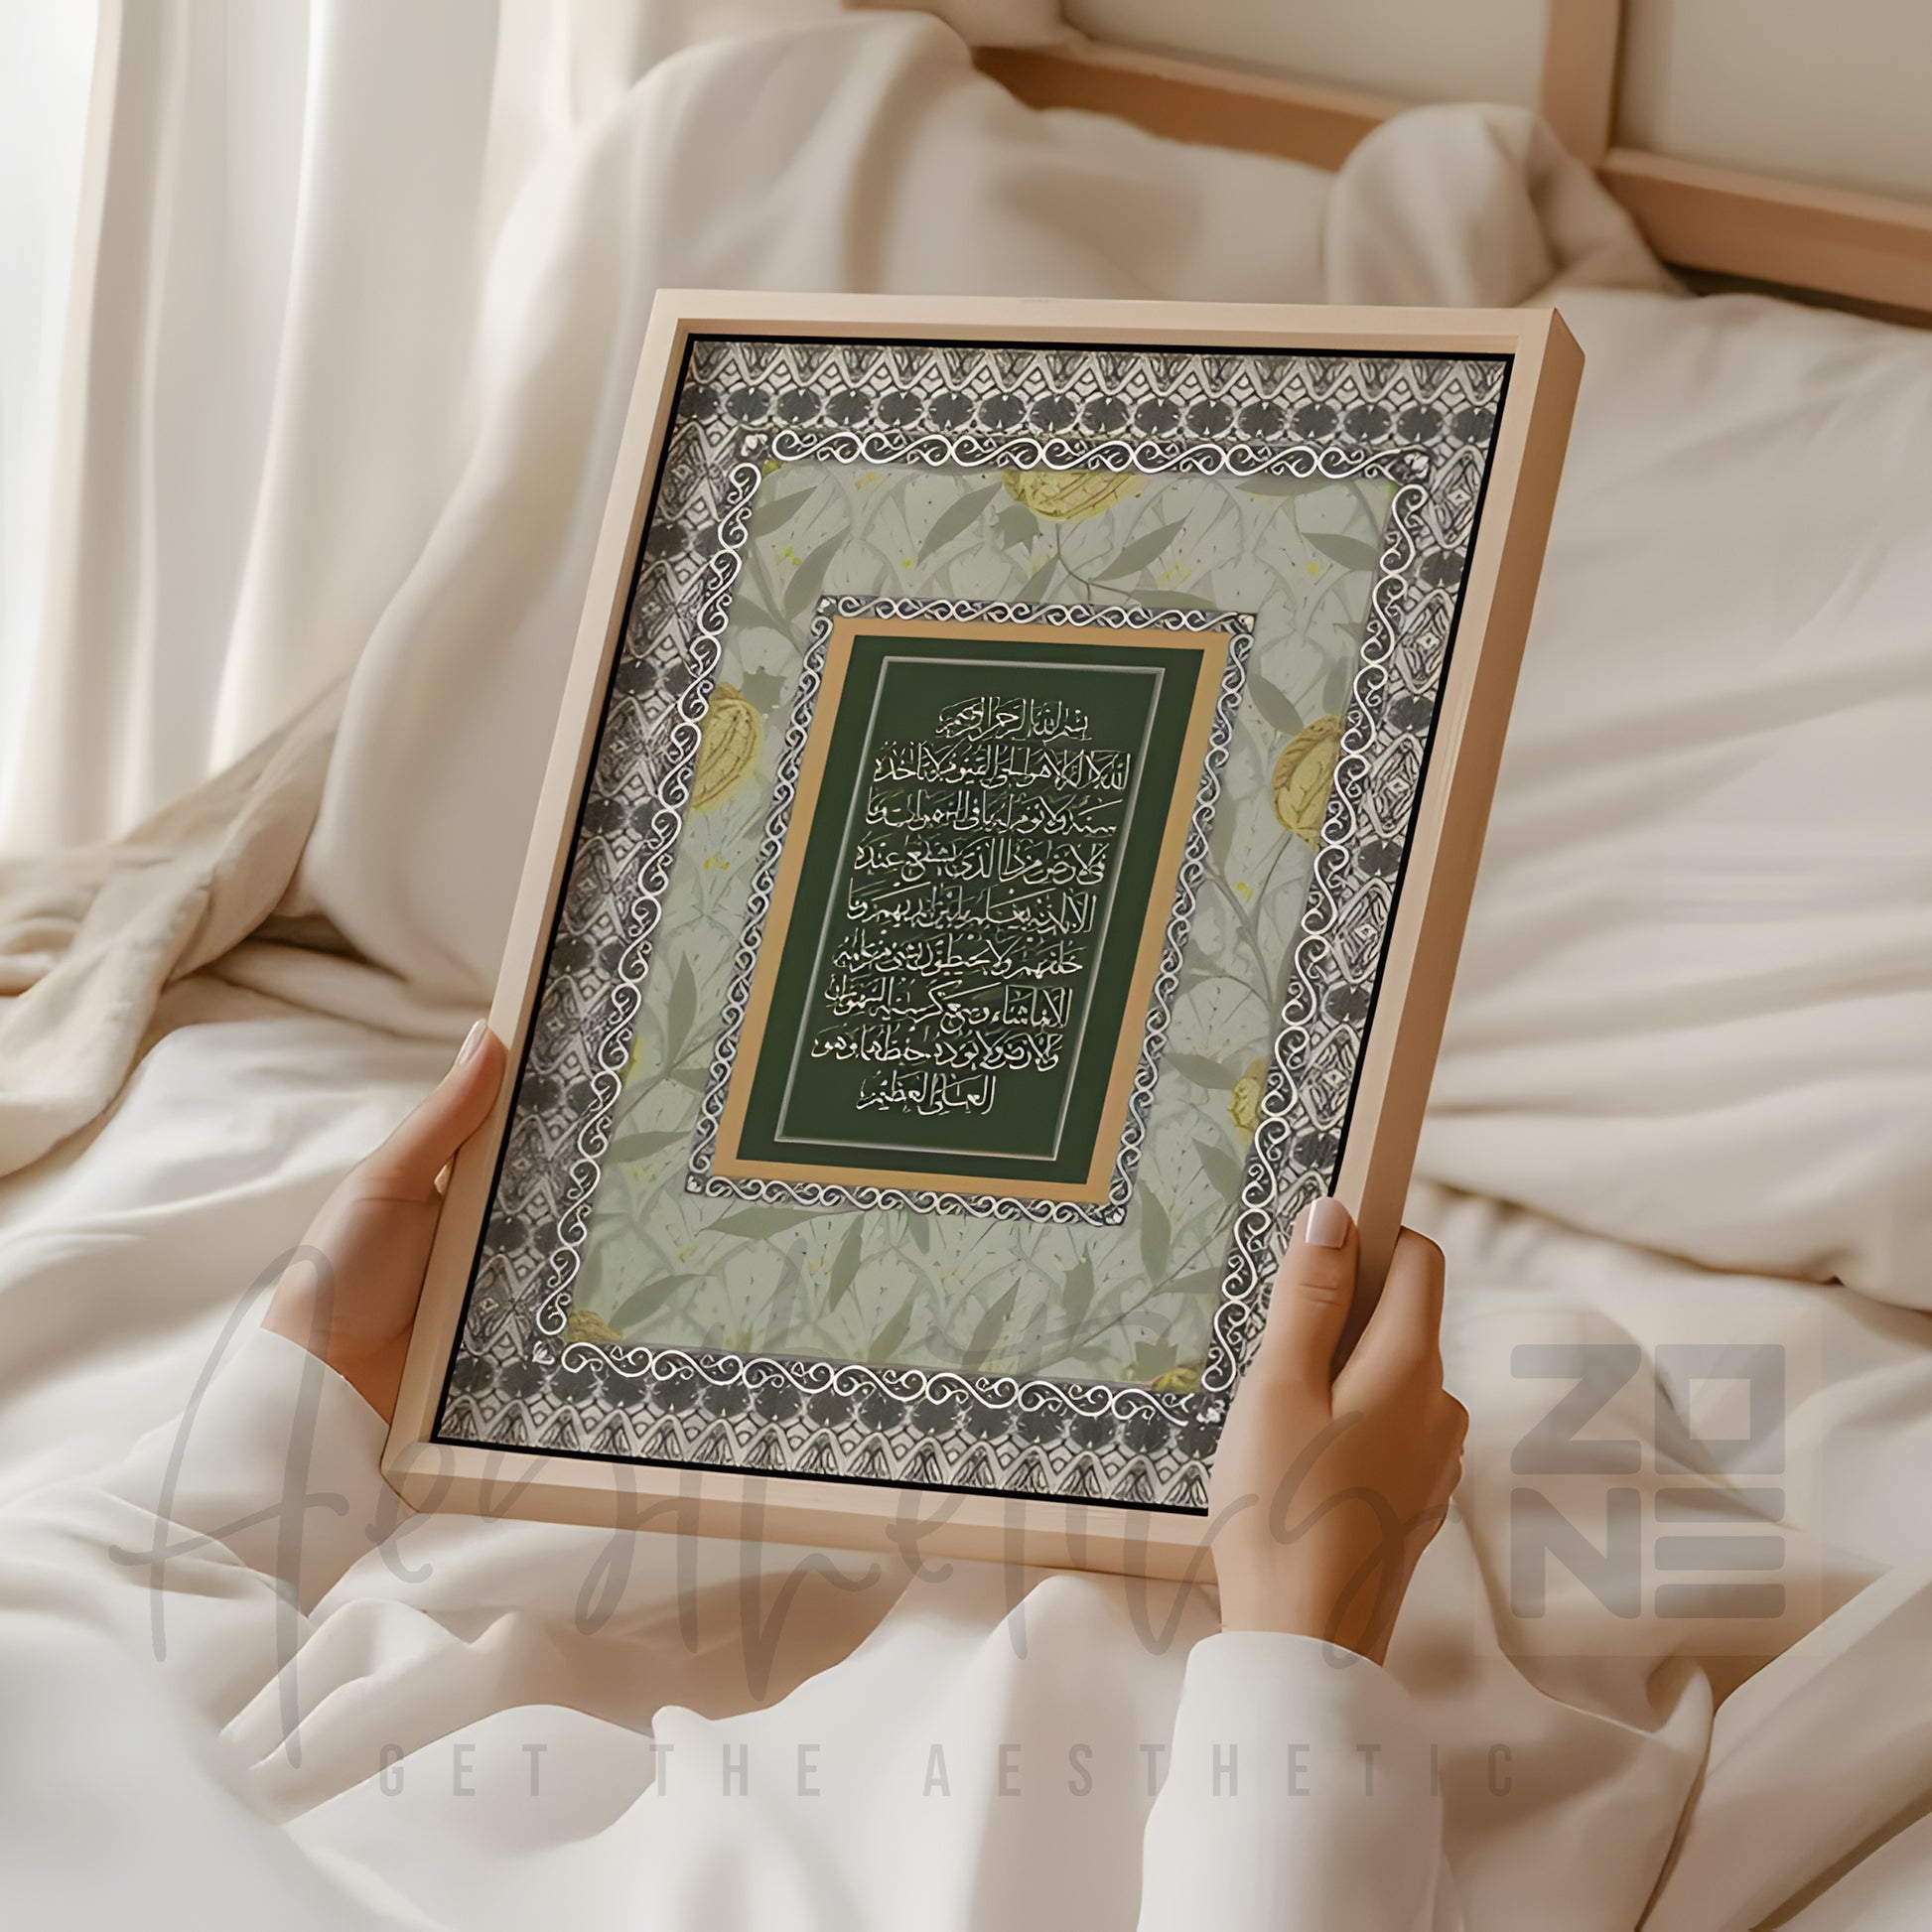 بسم الله الرحمن الرحيم
الله لا إله إلا هو الحي القيوم لا تأخذه
سنة ولا نوم له ما في السموات وما
في الأرض من ذا الذي يشفع عنده
إلا بإذنه يعلم ما بين أيديهم وما
خلفهم ولا يحيطون بشيء من علمه
إلا بما شاء وسع كرسيه السموات
والأرض ولا يؤده حفظهما وهو
العلي العظيم
Aesthetics
ZONE
GET THE AESTHETIC